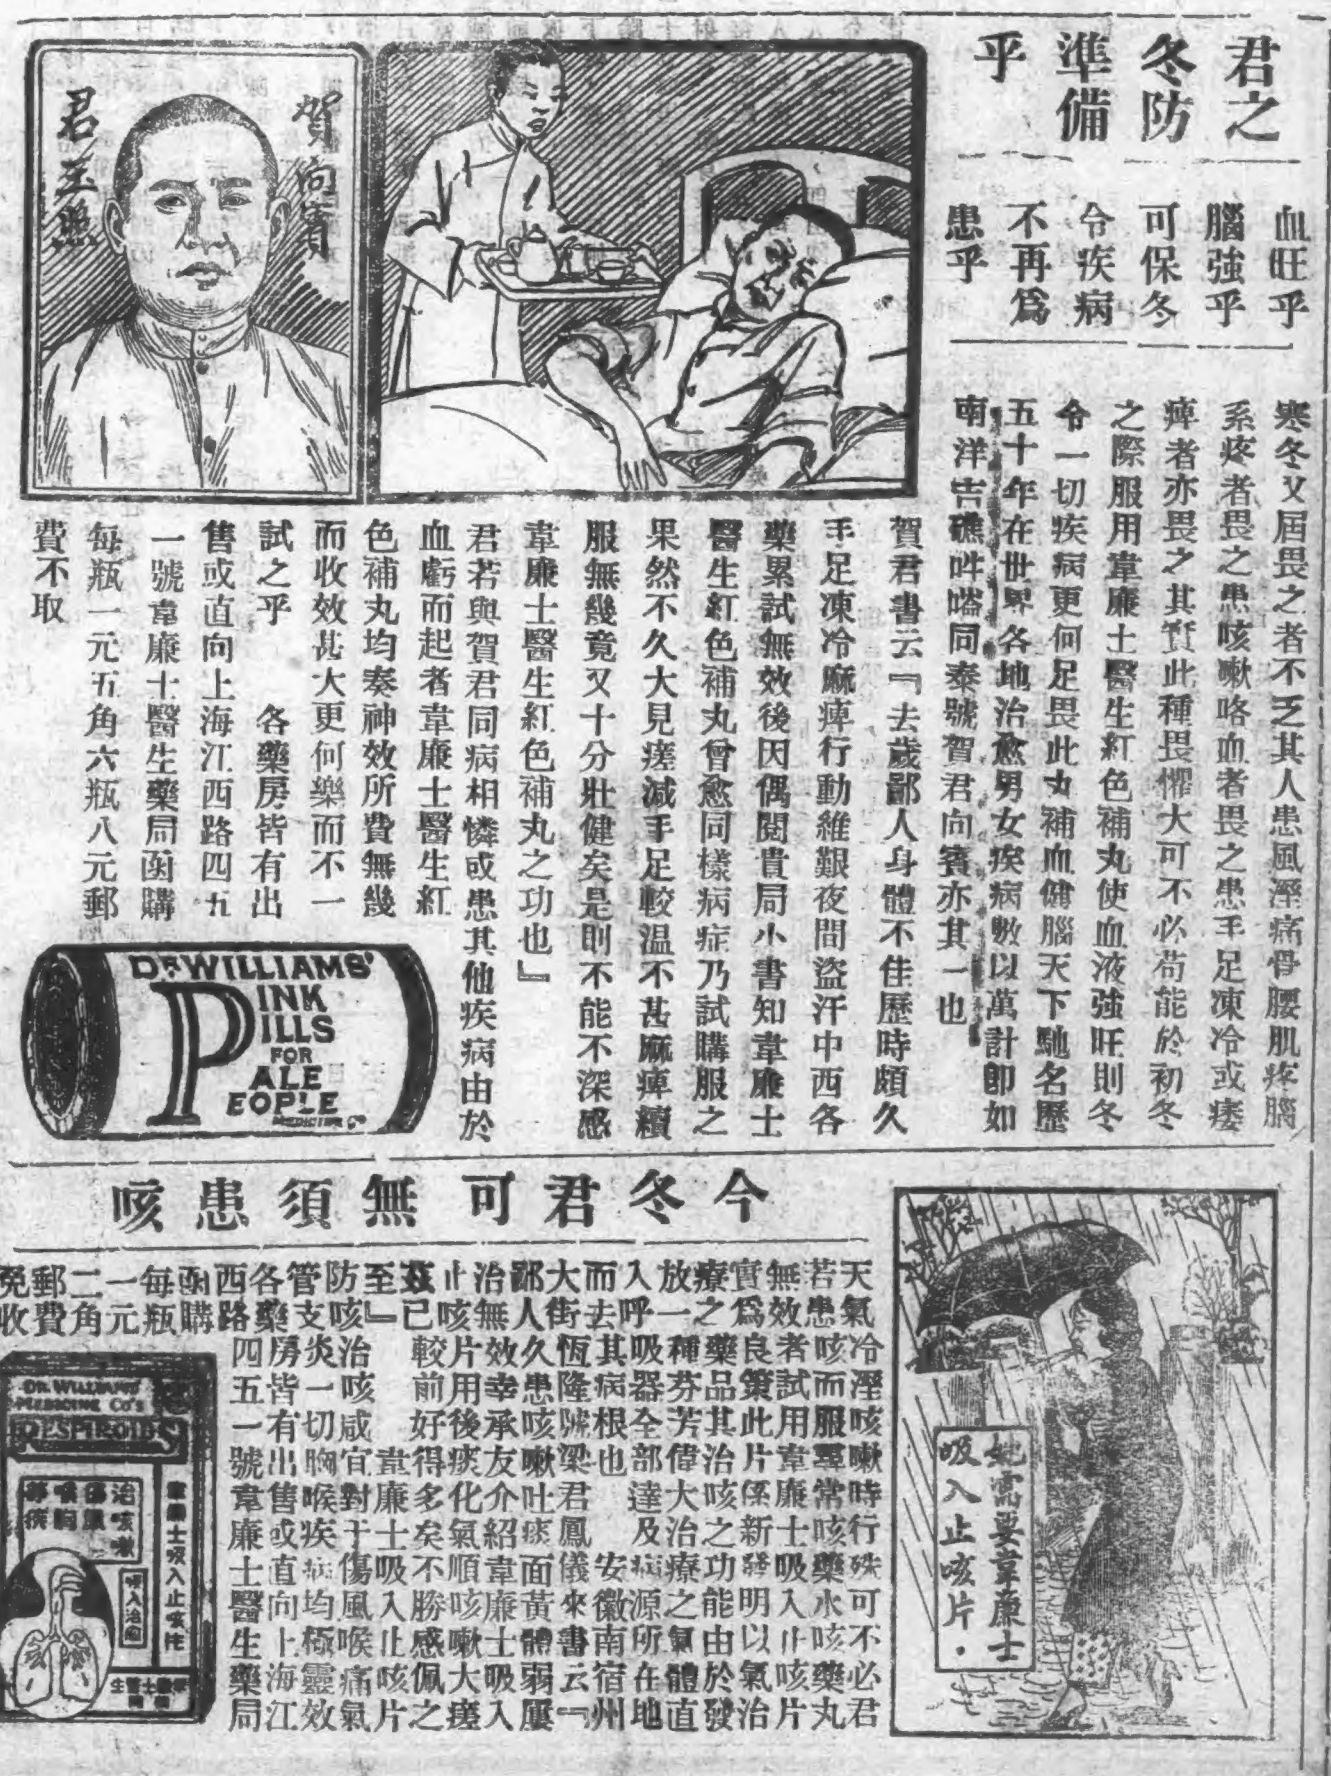 君之
冬防
準備
乎
血旺乎
腦強乎
可保冬
令疾病
不再爲
患乎
寒冬又屆畏之者不乏其人患風溼痛骨腰肌疼腦
系疼者畏之患咳嗽咯血者畏之患手足凍冷或痿
痺者亦畏之其實此種畏懼大可不必苟能於初冬
之際服用韋廉士醫生紅色補丸使血液強旺則冬
令一切疾病更何足畏此丸補血健腦天下馳名歷
五十年在世界各地治愈男女疾病數以萬計卽如
南洋吉礁吽嗒同泰號賀君向賓亦其一也
賀君書云『去歲鄙人身體不佳歷時頗久
手足凍冷麻痺行動維艱夜間盜汗中西各
藥累試無效後因偶閱貴局小書知韋廉士
醫生紅色補丸曾愈同樣病症乃試購服之
果然不久大見瘥減手足較温不甚麻痺續
服無幾竟又十分壯健矣是則不能不深感
韋廉士醫生紅色補丸之功也』
君若與賀君同病相憐或患其他疾病由於
血虧而起者韋廉士醫生紅
色補丸均奏神效所費無幾
而收效甚大更何樂而不一
試之乎 各藥房皆有出
售或直向上海江西路四五
一號韋廉士醫生藥局函購
每瓶一元五角六瓶八元郵
費不取
賀向賓
君玉照
DR WILLIAMS'
PINK
PILLS
FOR
PALE
PEOPLE
MEDICINE Co
今冬君可無須患咳
天氣冷溼咳嗽時行殊可不必君
若患咳而服尋常咳藥水咳藥丸
無效者試用韋廉士吸入止咳片
實爲良策此片係新發明以氣治
療之藥品其治咳之功能由於發
放一種芬芳偉大治療之氣體直
入呼吸器全部達及病源所在地
而去其病根也 安徽南宿州
大街恆隆號梁君鳳儀來書云『
鄙人久患咳嗽吐痰面黃體弱屢
治無效幸承友介紹韋廉士吸入
止咳片用後痰化氣順咳嗽大瘥
茲已較前好得多矣不勝感佩之
至』 韋廉士吸入止咳片
防咳治咳咸宜對于傷風喉痛氣
管支炎一切胸喉疾病均極靈效
各藥房皆有出售或直向上海江
西路四五一號韋廉士醫生藥局
函購
每瓶
一元
二角
郵費
免收
她需要韋廉士
吸入止咳片.
DR. WILLIAMS'
MEDICINE Co's
RESPIROIDS
韋廉士吸入止咳片
治咳嗽
傷風